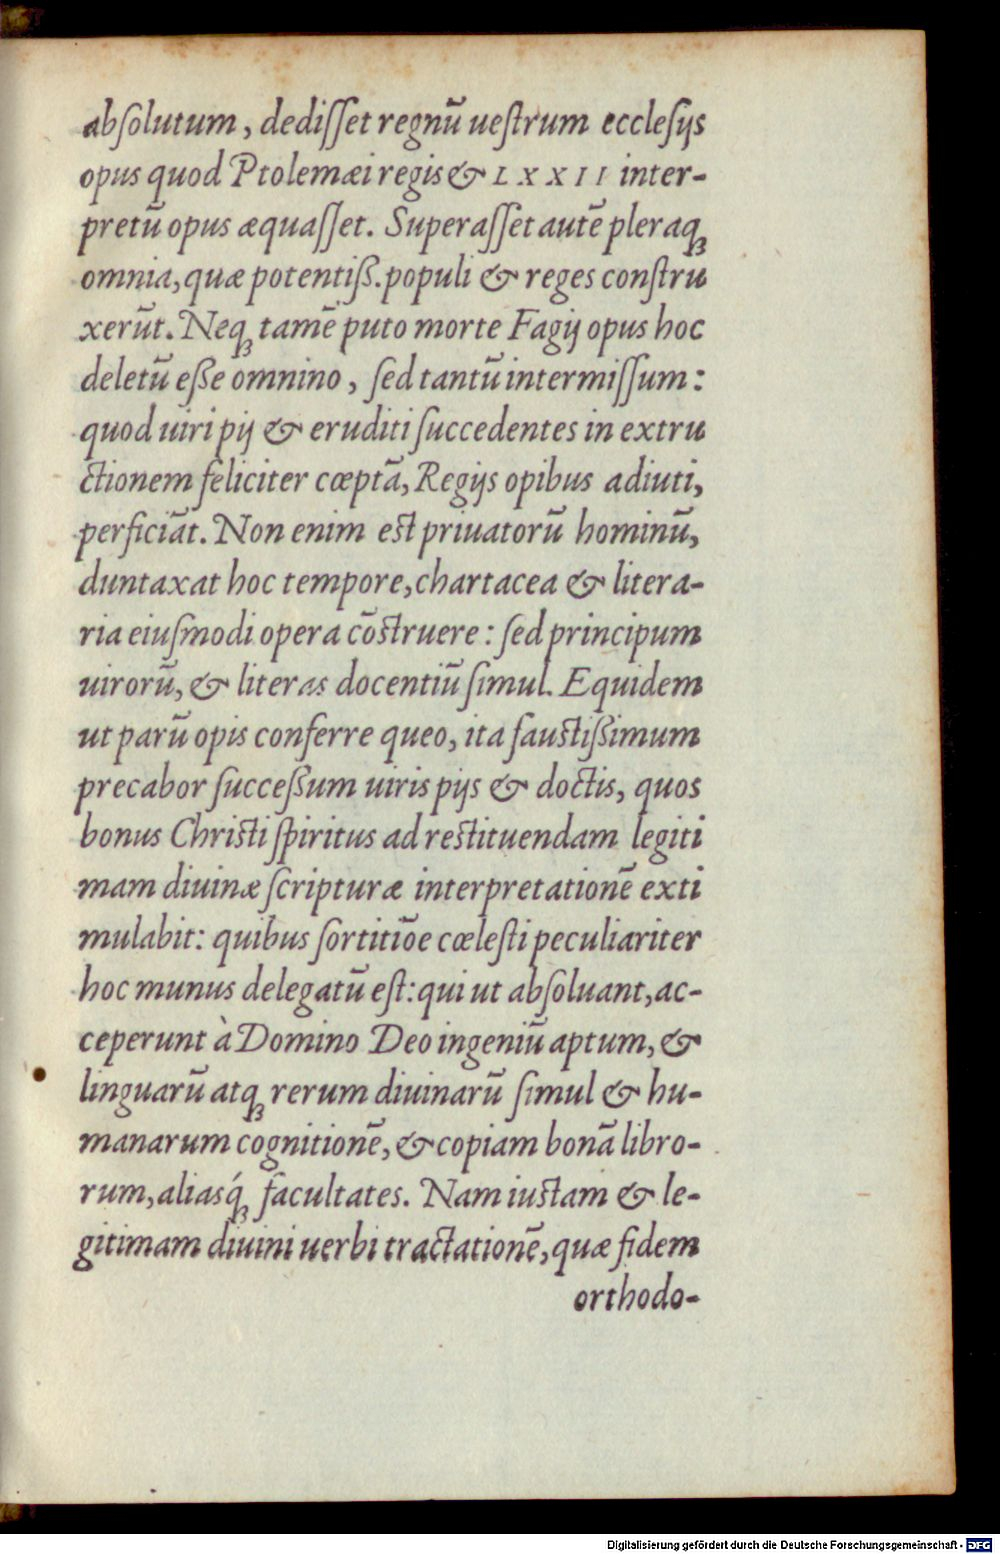 abſolutum, dediſſet regnū ueſtrum eccleſijs
opus quod Ptolemæi regis & LXXII inter-
pretū opus æquaſſet. Superaſſet autē pleraq;
omnia, quæ potentiß. populi & reges conſtru
xerūt. Neq; tamē puto morte Fagij opus hoc
deletū eße omnino, ſed tantū intermiſſum:
quod uiri pij & eruditi ſuccedentes in extru
ctionem feliciter cœptā, Regijs opibus adiuti,
perficiāt. Non enim est priuatorū hominū,
duntaxat hoc tempore, chartacea & litera-
ria eiuſmodi opera cōstruere: ſed principum
uirorū, & literas docentiū ſimul. Equidem
ut parū opis conferre queo, ita faustißimum
precabor ſucceßum uiris pijs & doctis, quos
bonus Christi ſpiritus ad restituendam legiti
mam diuinæ ſcripturæ interpretationē exti
mulabit: quibus ſortitiōe cœleſti peculiariter
hoc munus delegatū eſt: qui ut abſoluant, ac-
ceperunt à Domino Deo ingeniū aptum, &
linguarū atq; rerum diuinarū ſimul & hu-
manarum cognitionē, & copiam bonā libro-
rum, aliasq́; facultates. Nam iustam & le-
gitimam diuini uerbi tractationē, quæ fidem
orthodo-
Digitalisierung gefördert durch die Deutsche Forschungsgemeinschaft - DFG